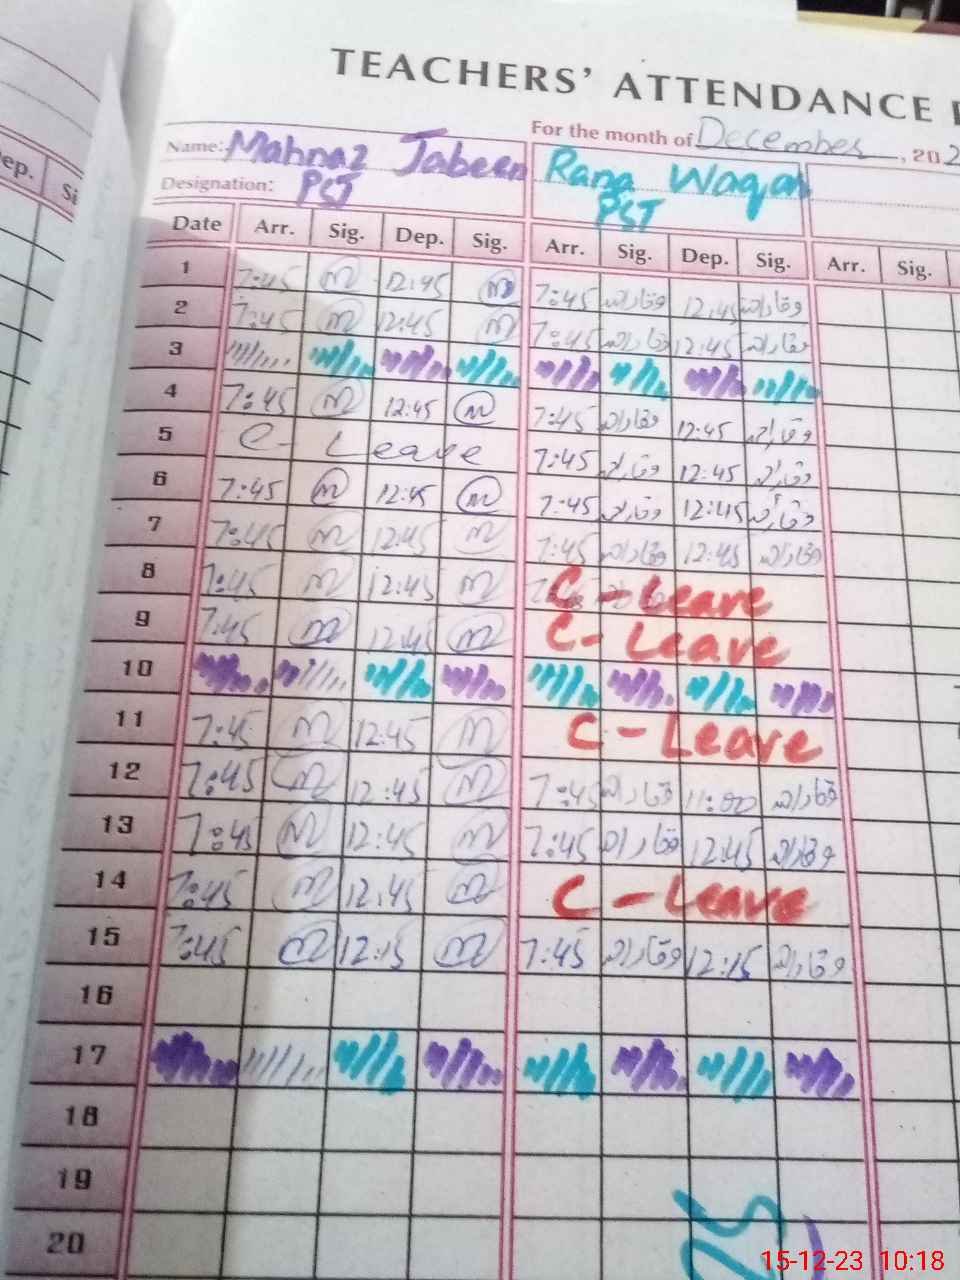 TEACHERS' ATTENDANCE
For the month of December, 202
Name: Mahnaz Jabeen Rana Waqar
Designation: PST PST
ep. Si
Date Arr. Sig. Dep. Sig. Arr. Sig. Dep. Sig. Arr. Sig.
1 7:45 m 12:45 m 7:45 وقاراں 12:45 وقاراں
2 7:45 m 12:45 m 7:45 وقاراں 12:45 وقاراں
3
4 7:45 m 12:45 m 7:45 وقاراں 12:45 وقاراں
5 C- Leave 7:45 وقاراں 12:45 وقاراں
6 7:45 m 12:45 m 7:45 وقاراں 12:45 وقاراں
7 7:45 m 12:45 m 7:45 وقاراں 12:45 وقاراں
8 7:45 m 12:45 m C - Leave
9 7:45 m 12:45 m C - Leave
10
11 7:45 m 12:45 m C - Leave
12 7:45 m 12:45 m 7:45 وقاراں 11:00 وقاراں
13 7:45 m 12:45 m 7:45 وقاراں 12:45 وقاراں
14 7:45 m 12:45 m C - Leave
15 7:45 m 12:15 m 7:45 وقاراں 12:15 وقاراں
16
17
18
19
20
15-12-23 10:18